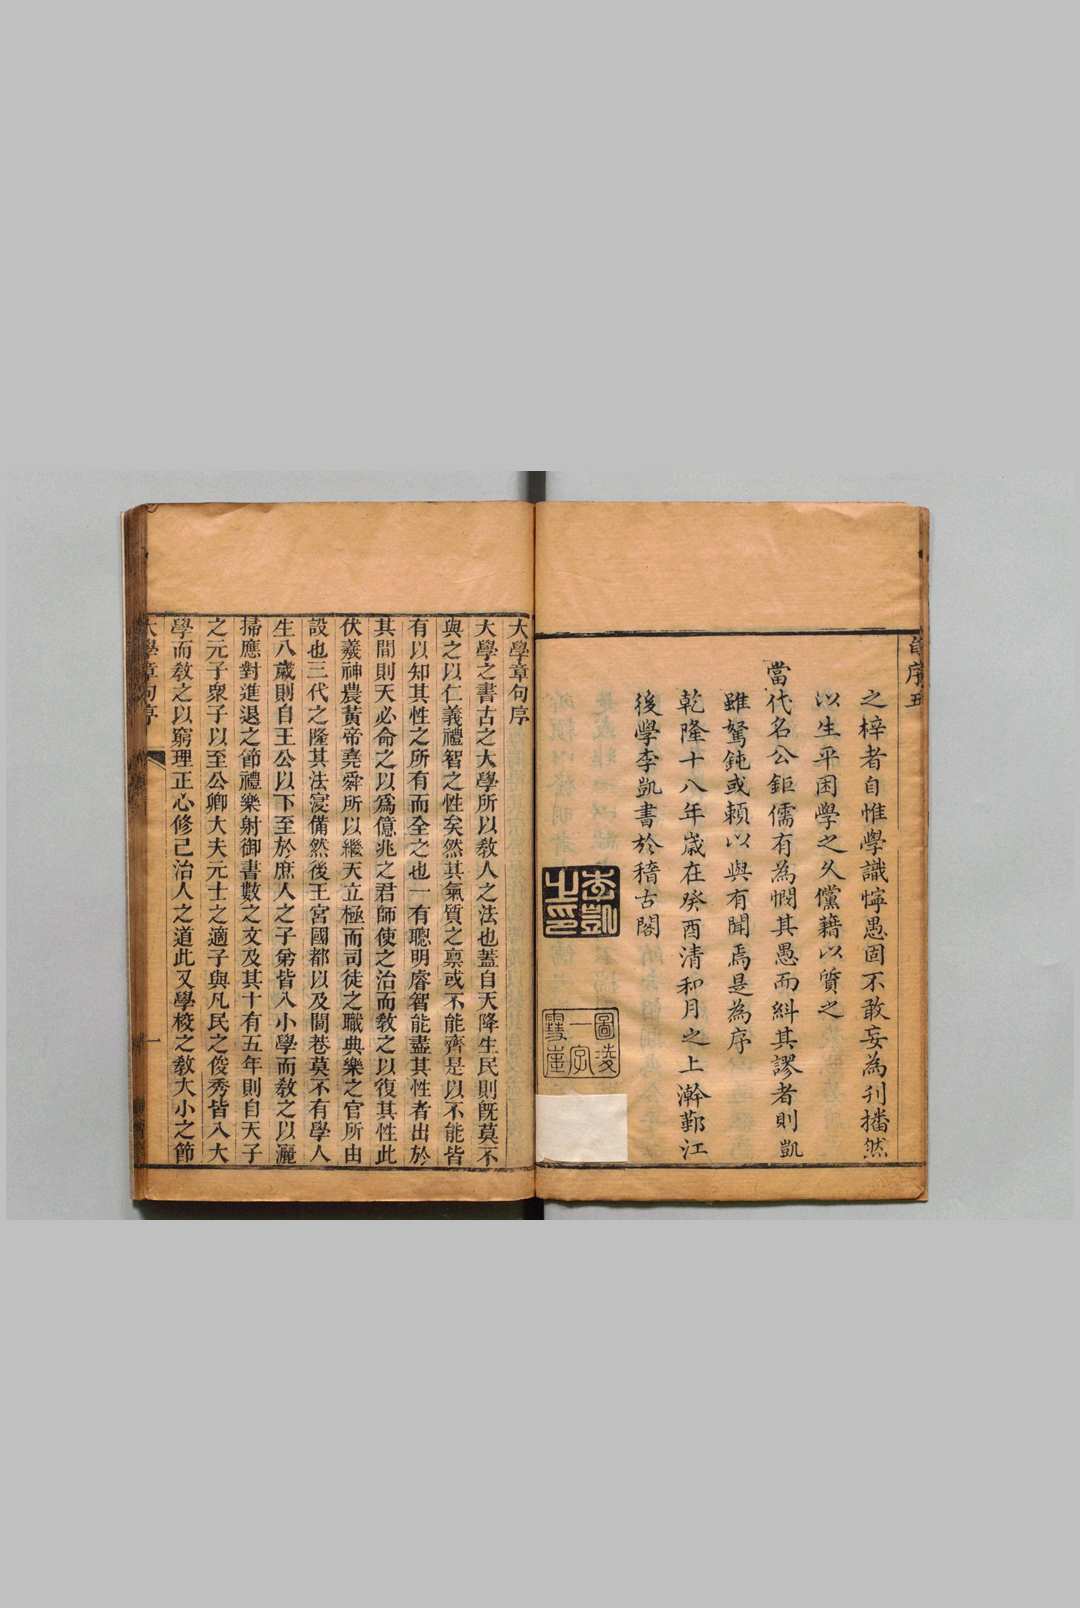 自序 五
之梓者自惟學識懧愚固不敢妄為刊播然
以生平困學之久儻藉以質之
當代名公鉅儒有為憫其愚而糾其謬者則凱
雖駑鈍或賴以與有聞焉是為序
乾隆十八年歲在癸酉清和月之上澣鄞江
後學李凱書於稽古閣
李凱之印
大學章句序
大學之書古之大學所以敎人之法也蓋自天降生民則旣莫不
與之以仁義禮智之性矣然其氣質之稟或不能齊是以不能皆
有以知其性之所有而全之也一有聰明睿智能盡其性者出於
其間則天必命之以爲億兆之君師使之治而敎之以復其性此
伏羲神農黃帝堯舜所以繼天立極而司徒之職典樂之官所由
設也三代之隆其法寖備然後王宮國都以及閭巷莫不有學人
生八歲則自王公以下至於庶人之子弟皆入小學而敎之以灑
掃應對進退之節禮樂射御書數之文及其十有五年則自天子
之元子衆子以至公卿大夫元士之適子與凡民之俊秀皆入大
學而敎之以窮理正心修己治人之道此又學校之敎大小之節
大學章句序 一